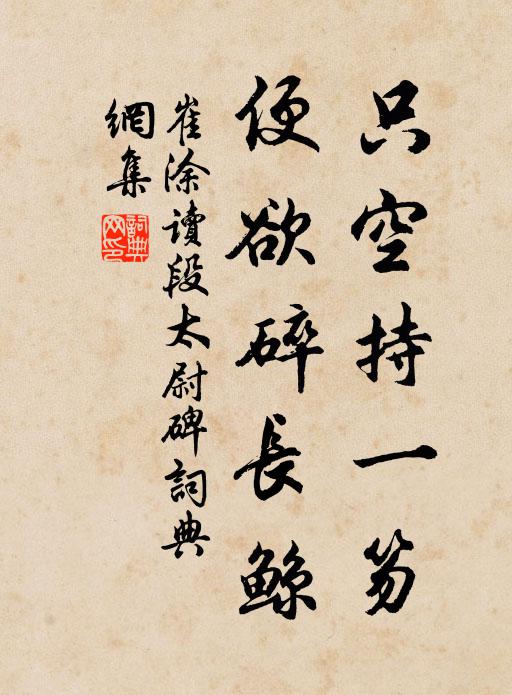 只空持一笏
便欲碎長鯨
崔涂讀段太尉碑詞典
網集
詞典網印